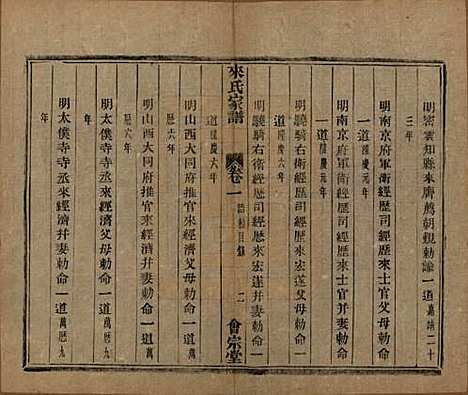 明密雲知縣來齊薦朝覲勅諭一道嘉靖二十
三年
明南京府軍衛經歷司經歷來士官父母勅命
一道隆慶元年
明南京府軍衛經歷司經歷來士官并妻勅命
一道隆慶元年
明驍騎右衛經歷司經歷來宏遂父母勅命一
道隆慶六年
明驍騎右衛經歷司經歷來宏遂并妻勅命一
道隆慶六年
來氏家譜
卷一
誥勅目錄
二
會宗堂
明山西大同府推官來經濟父母勅命一道萬
歷六年
明山西大同府推官來經濟并妻勅命一道萬
歷六年
明太僕寺寺丞來經濟父母勅命一道萬歷九
年
明太僕寺寺丞來經濟并妻勅命一道萬歷九
年